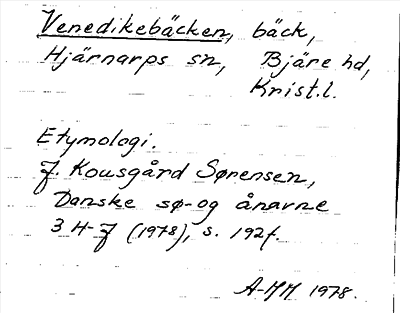 Venedikebäcken, bäck,
Hjärnarps sn, Bjäre hd,
Krist.l.
Etymologi.
J. Kousgård Sørensen,
Danske sø- og ånavne
3 H-J (1978), s. 192f.
A-MH 1978.